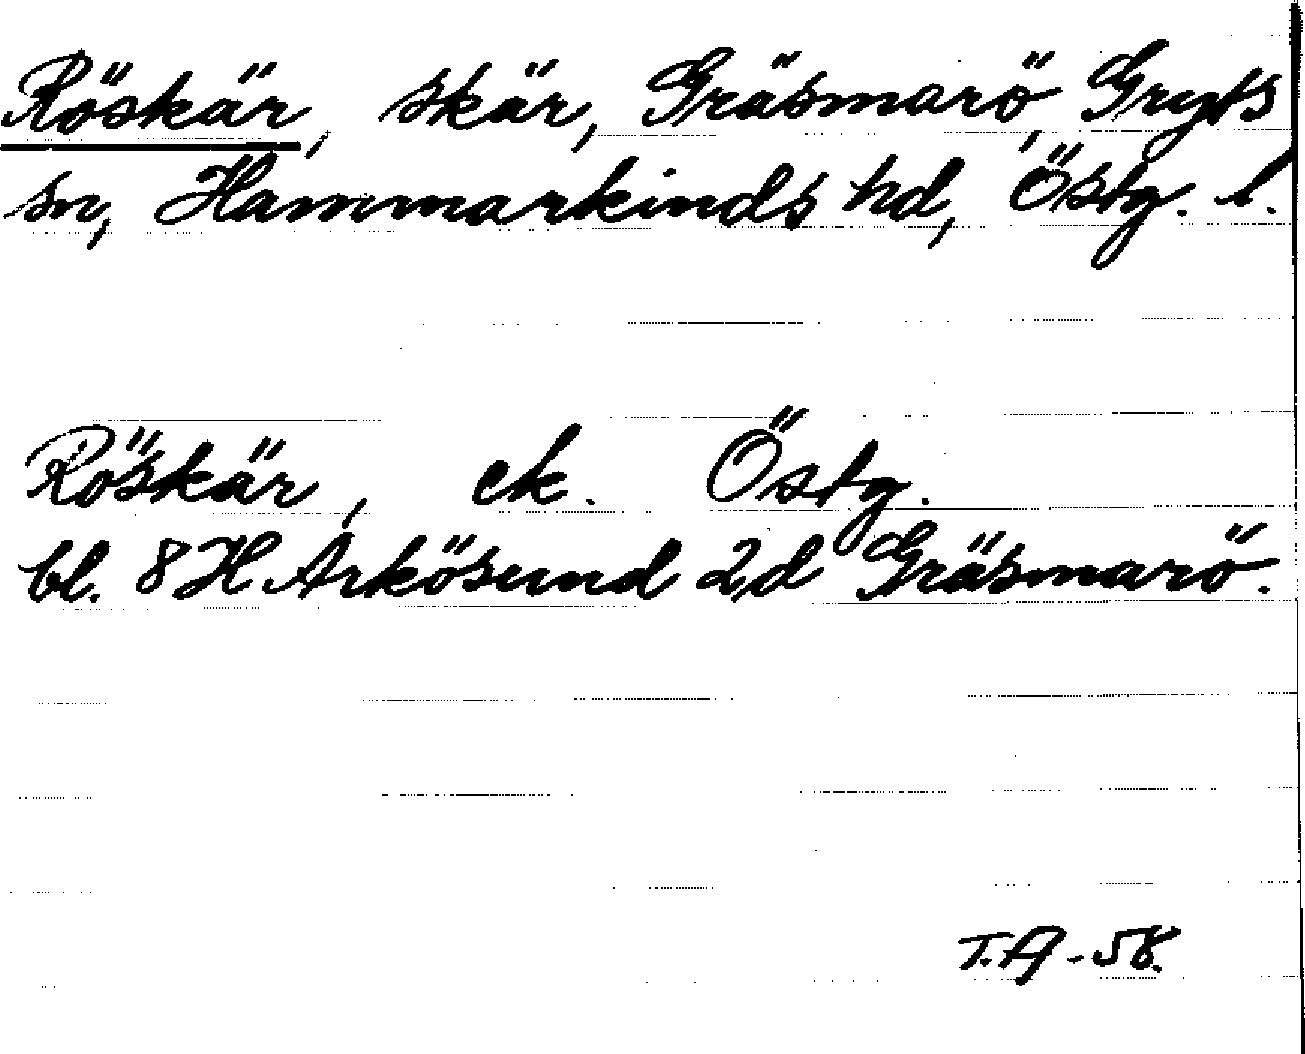 Röskär, skär, Gräsmarö, Gryts
sn, Hammarkinds hd, Östg. l.
Röskär, ek. Östg.
bl. 8 H Arkösund 2d Gräsmarö.
T.A-58.